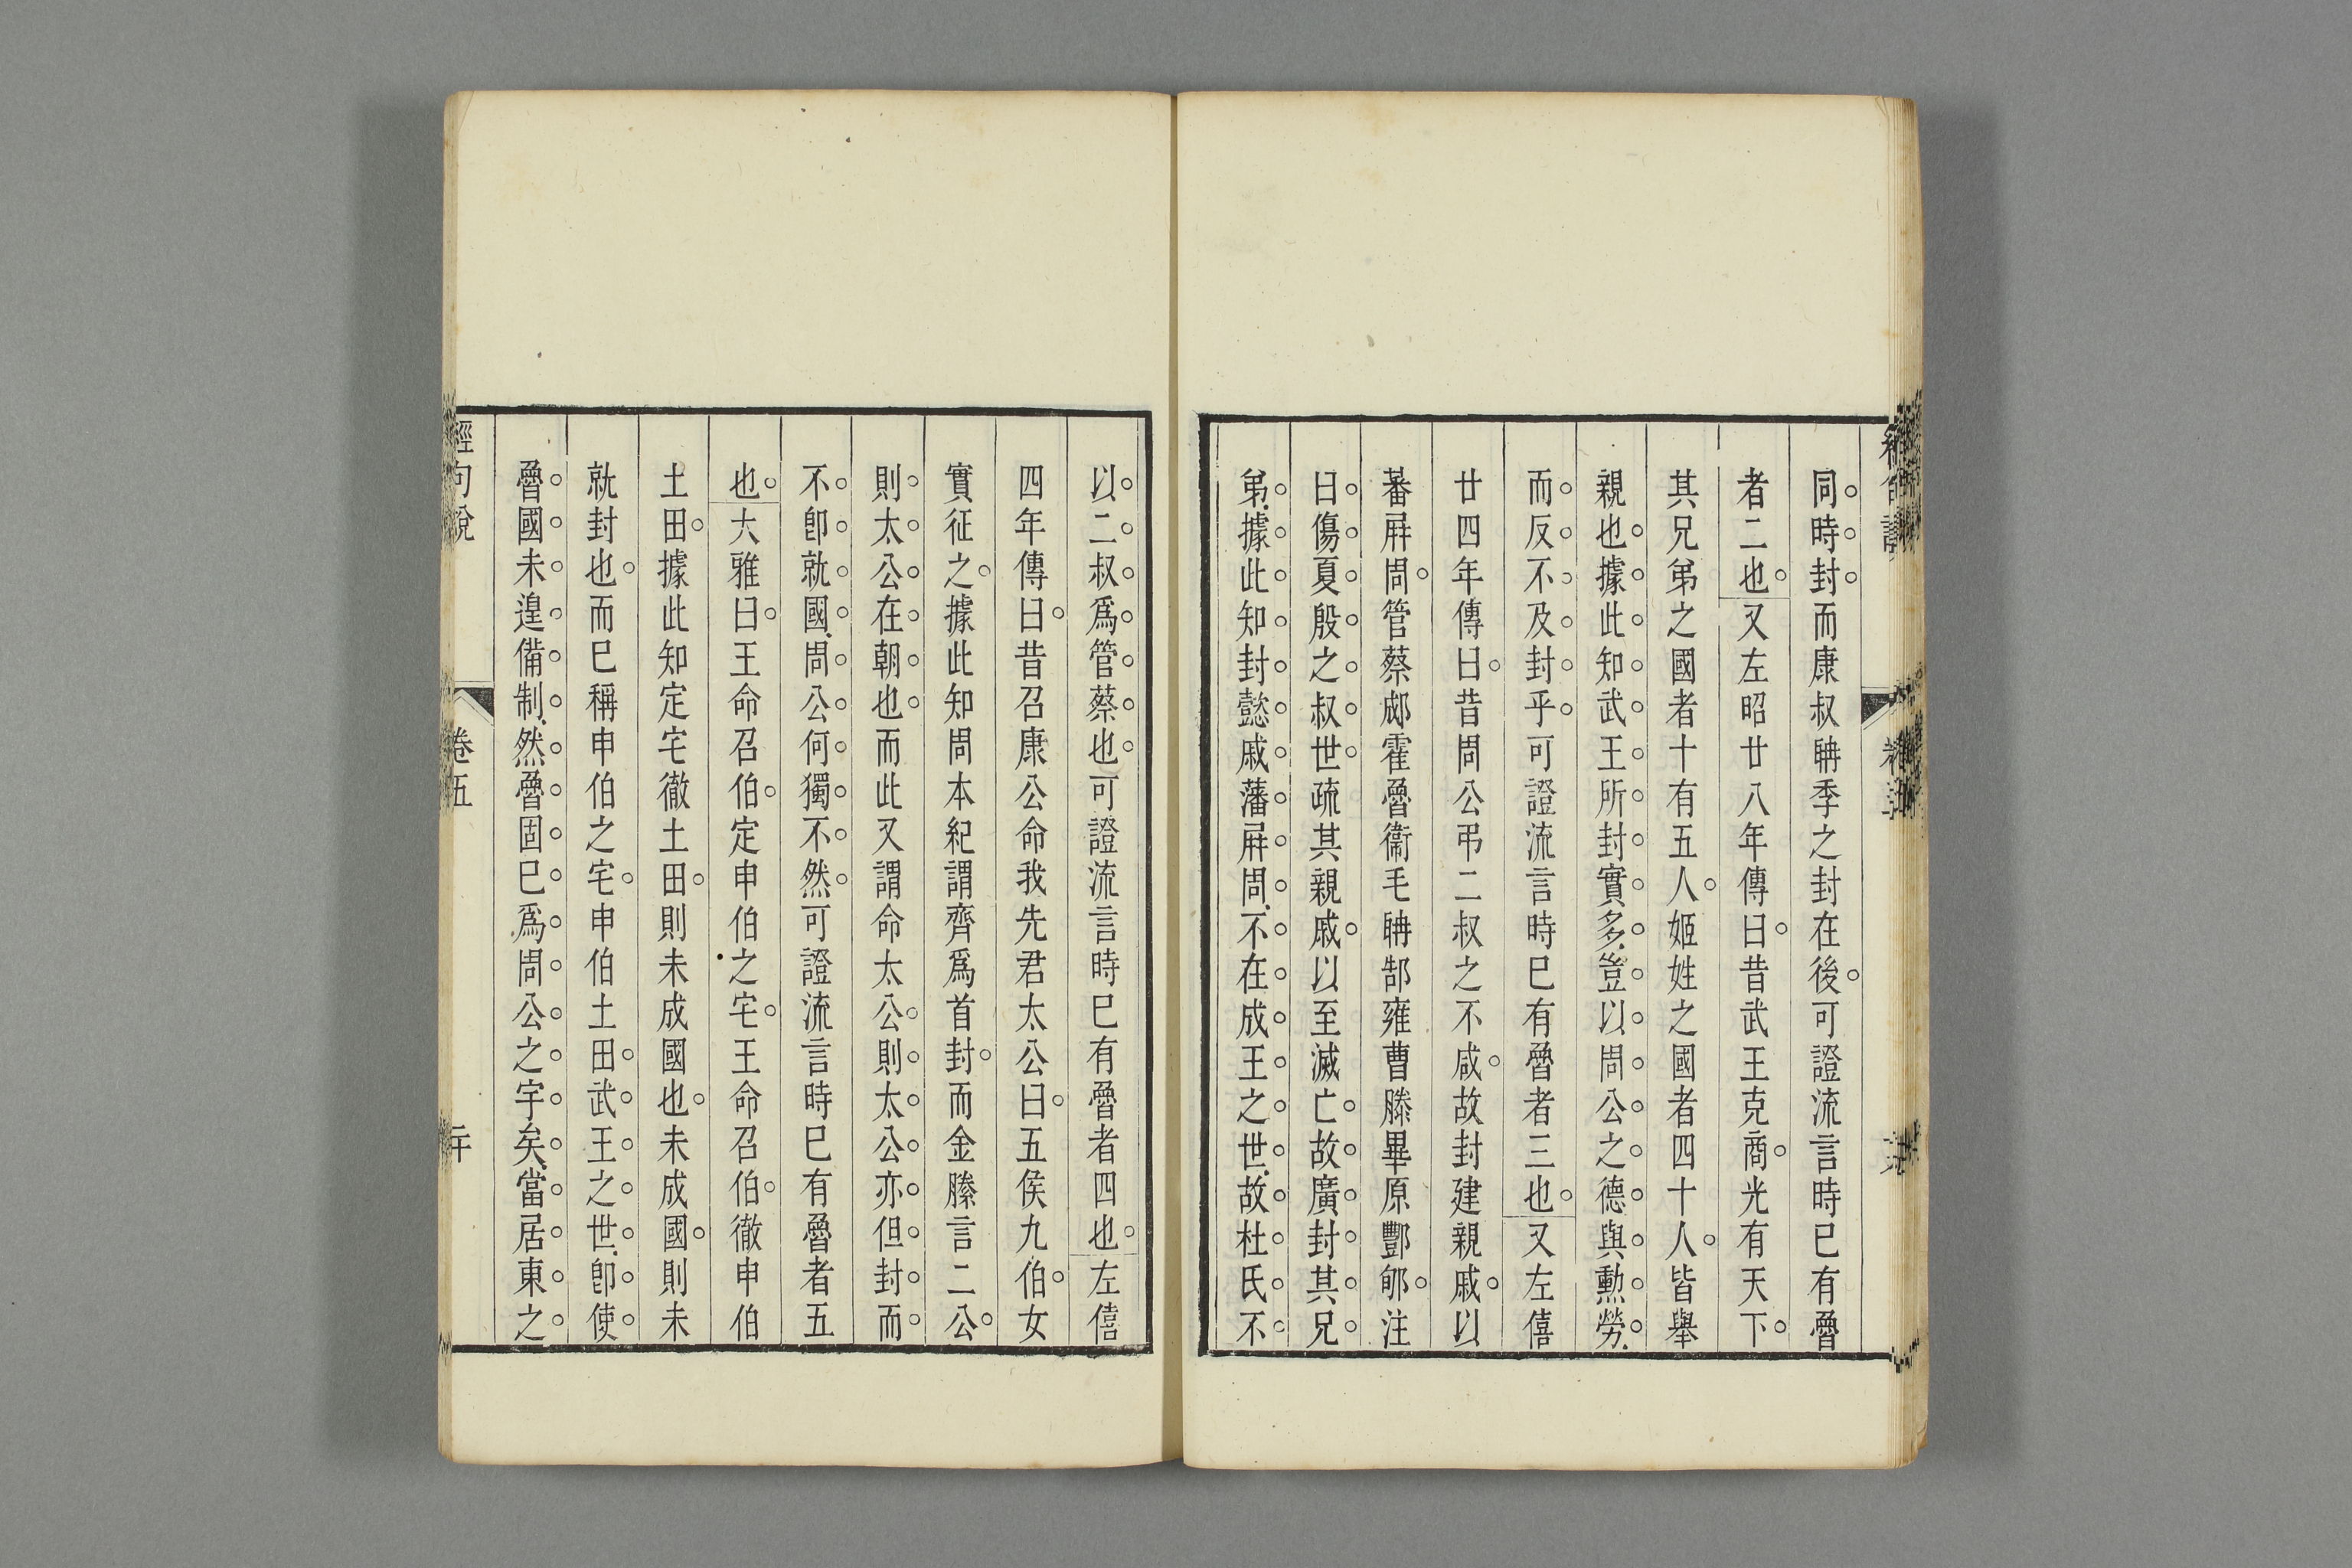 同時封而康叔聃季之封在後可證流言時巳有魯
者二也又左昭廿八年傳曰昔武王克商光有天下
其兄弟之國者十有五人姬姓之國者四十人皆舉
親也據此知武王所封實多豈以周公之德與勳勞
而反不及封乎可證流言時巳有魯者三也又左僖
廿四年傳曰昔周公弔二叔之不咸故封建親戚以
蕃屛周管蔡郕霍魯衞毛聃郜雍曹滕畢原酆郇注
曰傷夏殷之叔世疏其親戚以至滅亡故廣封其兄
弟據此知封懿戚藩屛周不在成王之世故杜氏不
以二叔爲管蔡也可證流言時巳有魯者四也左僖
四年傳曰昔召康公命我先君太公曰五侯九伯女
實征之據此知周本紀謂齊爲首封而金縢言二公
則太公在朝也而此又謂命太公則太公亦但封而
不卽就國周公何獨不然可證流言時巳有魯者五
也大雅曰王命召伯定申伯之宅王命召伯徹申伯
土田據此知定宅徹土田則未成國也未成國則未
就封也而巳稱申伯之宅申伯土田武王之世卽使
魯國未遑備制然魯固巳爲周公之宇矣當居東之
經句說
卷五
二十